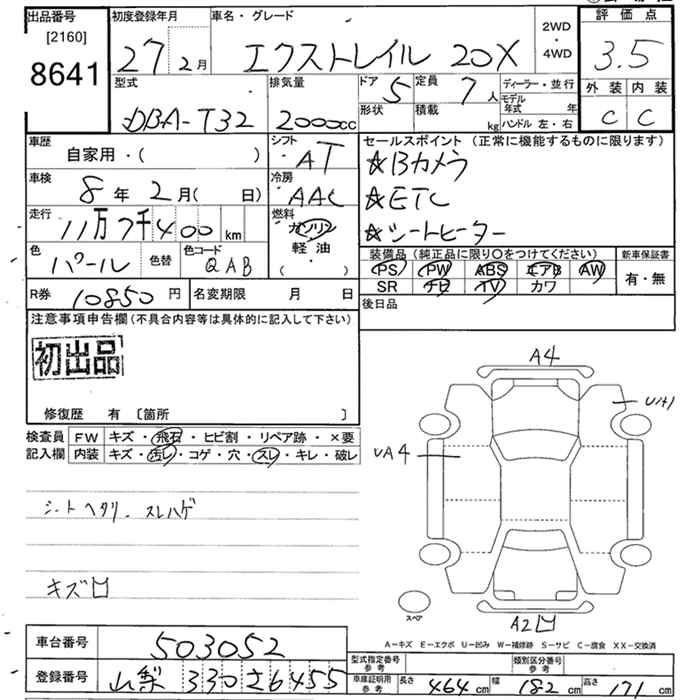 出品番号
[2160]
8641
初度登録年月
27 2月
車名・グレード
エクストレイル 20X
2WD
・
4WD
評価点
3.5
外装 内装
C C
型式
DBA-T32
排気量
2000cc
ドア 5
定員 7人
形状
積載 kg
ディーラー・並行
モデル年式 年
ハンドル 左・右
車歴
自家用・( )
シフト
AT
車検
8年2月( 日)
冷房
AAC
走行
11万7千400km
燃料
ガソリン
軽油
( ・ )
色
パール
色替
色コード
QAB
セールスポイント(正常に機能するものに限ります)
☆Bカメラ
☆ETC
☆シートヒーター
装備品(純正品に限り○をつけてください)
PS PW ABS エアB AW
SR ナビ TV カワ
新車保証書
有・無
R券 10850円
名変期限 月 日
後日品
注意事項申告欄(不具合内容等は具体的に記入して下さい)
初出品
修復歴 有 [箇所 ]
検査員
記入欄
FW キズ・飛石・ヒビ割・リペア跡・×要
内装 キズ・汚レ・コゲ・穴・スレ・キレ・破レ
シートヘタリ スレハゲ
キズ凹
A4
U
UA4
スペア
A2凹
A−キズ E−エクボ U−凹み W−補修跡 S−サビ C−腐食 XX−交換済
車台番号
503052
登録番号
山梨 330 さ 6455
型式指定番号
参考
類別区分番号
参考
車庫証明用
参考
長さ 464cm 幅 182cm 高さ 171cm